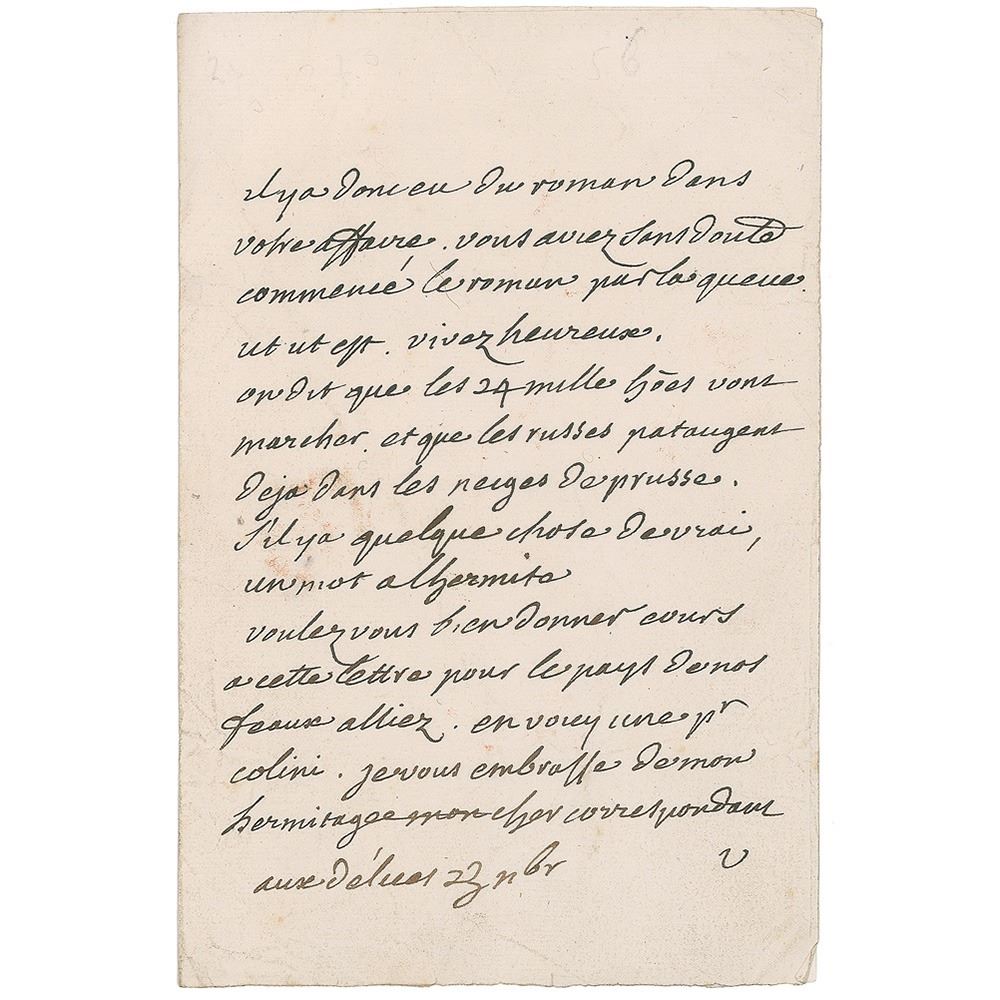 il y a donc eu du roman dans
votre affaire. vous aviez sans doute
commencé le roman par la queue.
ut ut est. vivez heureux.
on dit que les 24 mille hões vont
marcher. et que les russes pataugent
deja dans les neiges de prusse.
s'il y a quelque chose de vrai,
un mot a lhermite
voulez vous bien donner cours
a cette lettre pour le pays de nos
feaux alliez. en voicy une pr
colini. je vous embrasse de mon
hermitage mon cher correspondant
aux délices 23 nbr
V
56